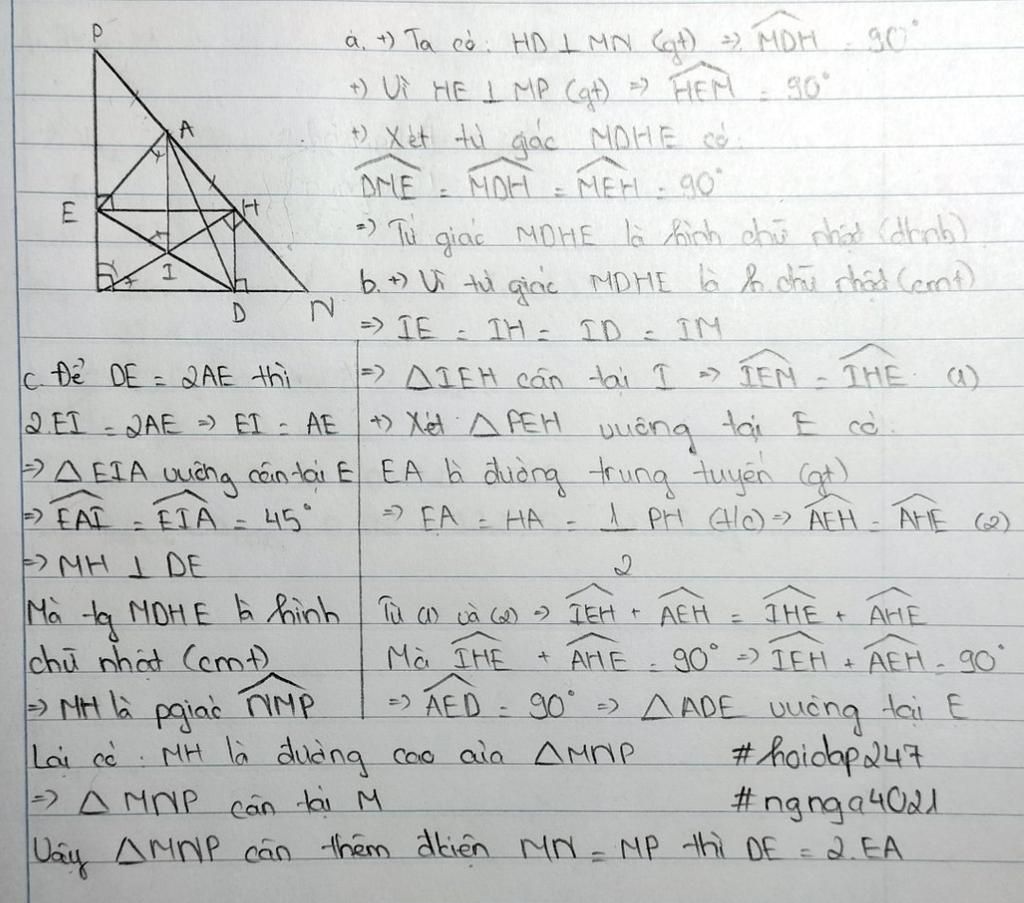 P
A
E
H
I
D
N
a. +) Ta có: HD ⊥ MN (gt) => \widehat{MDH} = 90°
+) Vì HE ⊥ MP (gt) => \widehat{HEM} = 90°
+) Xét tứ giác MDHE có:
\widehat{DME} = \widehat{MDH} = \widehat{MEH} = 90°
=> Tứ giác MDHE là hình chữ nhật (dhnb)
b. +) Vì tứ giác MDHE là h.chữ nhật (cmt)
=> IE = IH = ID = IM
=> △IEH cân tại I => \widehat{IEM} = \widehat{IHE} (1)
+) Xét △PEH vuông tại E có:
EA là đường trung tuyến (gt)
=> EA = HA = 1/2 PH (t/c) => \widehat{AEH} = \widehat{AHE} (2)
Từ (1) và (2) => \widehat{IEH} + \widehat{AEH} = \widehat{IHE} + \widehat{AHE}
Mà \widehat{IHE} + \widehat{AHE} = 90° => \widehat{IEH} + \widehat{AEH} = 90°
=> \widehat{AED} = 90° => △ADE vuông tại E
c. Để DE = 2AE thì
2.EI = 2AE => EI = AE
=> △EIA vuông cân tại E
=> \widehat{EAI} = \widehat{EIA} = 45°
=> MH ⊥ DE
Mà tg MDHE là hình
chữ nhật (cmt)
=> MH là pgiác \widehat{NMP}
Lại có: MH là đường cao của △MNP
=> △MNP cân tại M
Vậy △MNP cần thêm đkiện MN = MP thì DE = 2.EA
#hoidap247
#ngnga4021